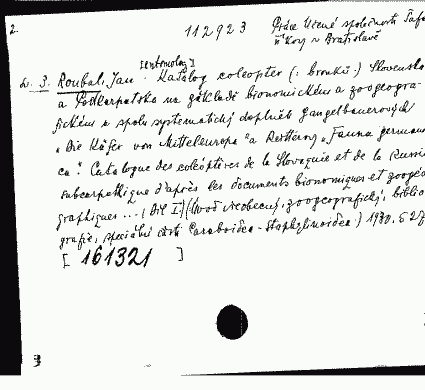 2. 112923 Práce Učené společnosti Šafa
v Bratislavě
[entomolog]
3. Roubal, Jan. Katalog coleopter (: brouků:) Slovenska
a Podkarpatska na základě bionomickém a zoogeogra-
fickém a spolu systematický doplněk Ganglbauerových
„Die Käfer von Mitteleuropa" a Reitterovy „Fauna germani-
ca". Catalogue des coléoptères de la Slovaquie et de la Russie
subcarpathique d'après les documents bionomiques et zoogéo-
graphiques ... (Díl I.) (: Úvod všeobecný, zoogeografický, biblio-
grafie, speciální část Caraboidea - Staphylinoidea:) 1930. 527
[ 161321 ]
3